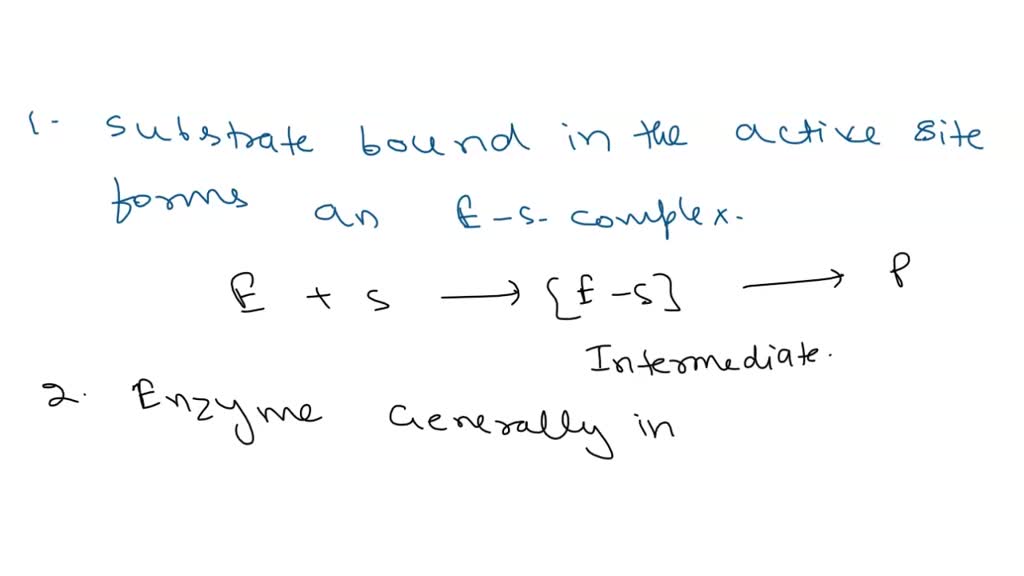 1. Substrate bound in the active site
forms an E-S-complex.
E + S ⟶ [E-S] ⟶ P
Intermediate.
2. Enzyme Generally in